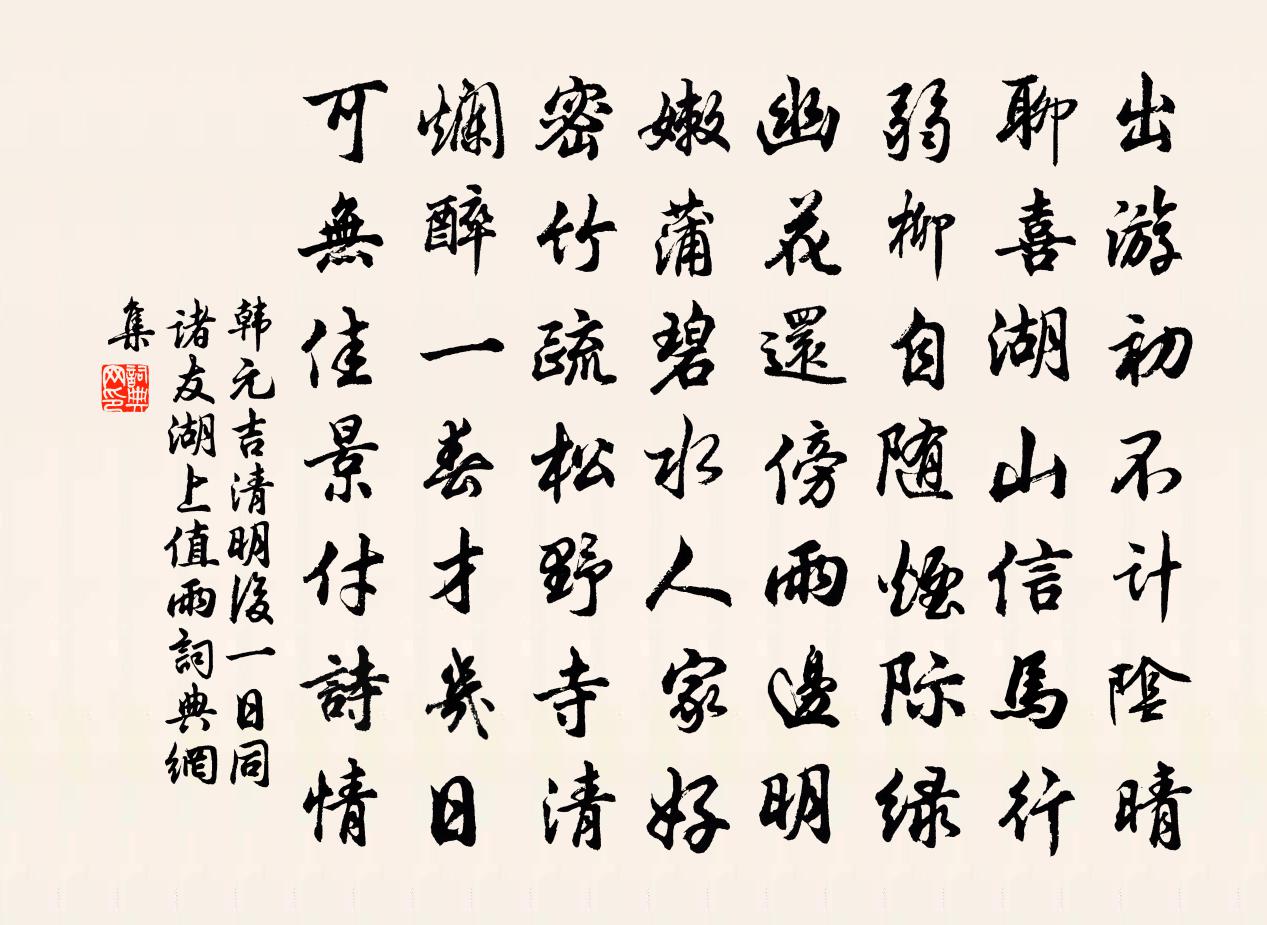 出游初不计陰晴
聊喜湖山信馬行
弱柳自随煙际绿
幽花還傍雨邊明
嫩蒲碧水人家好
密竹疏松野寺清
爛醉一春才幾日
可無佳景付詩情
韩元吉清明後一日同
诸友湖上值雨詞典網
集
詞典
网印